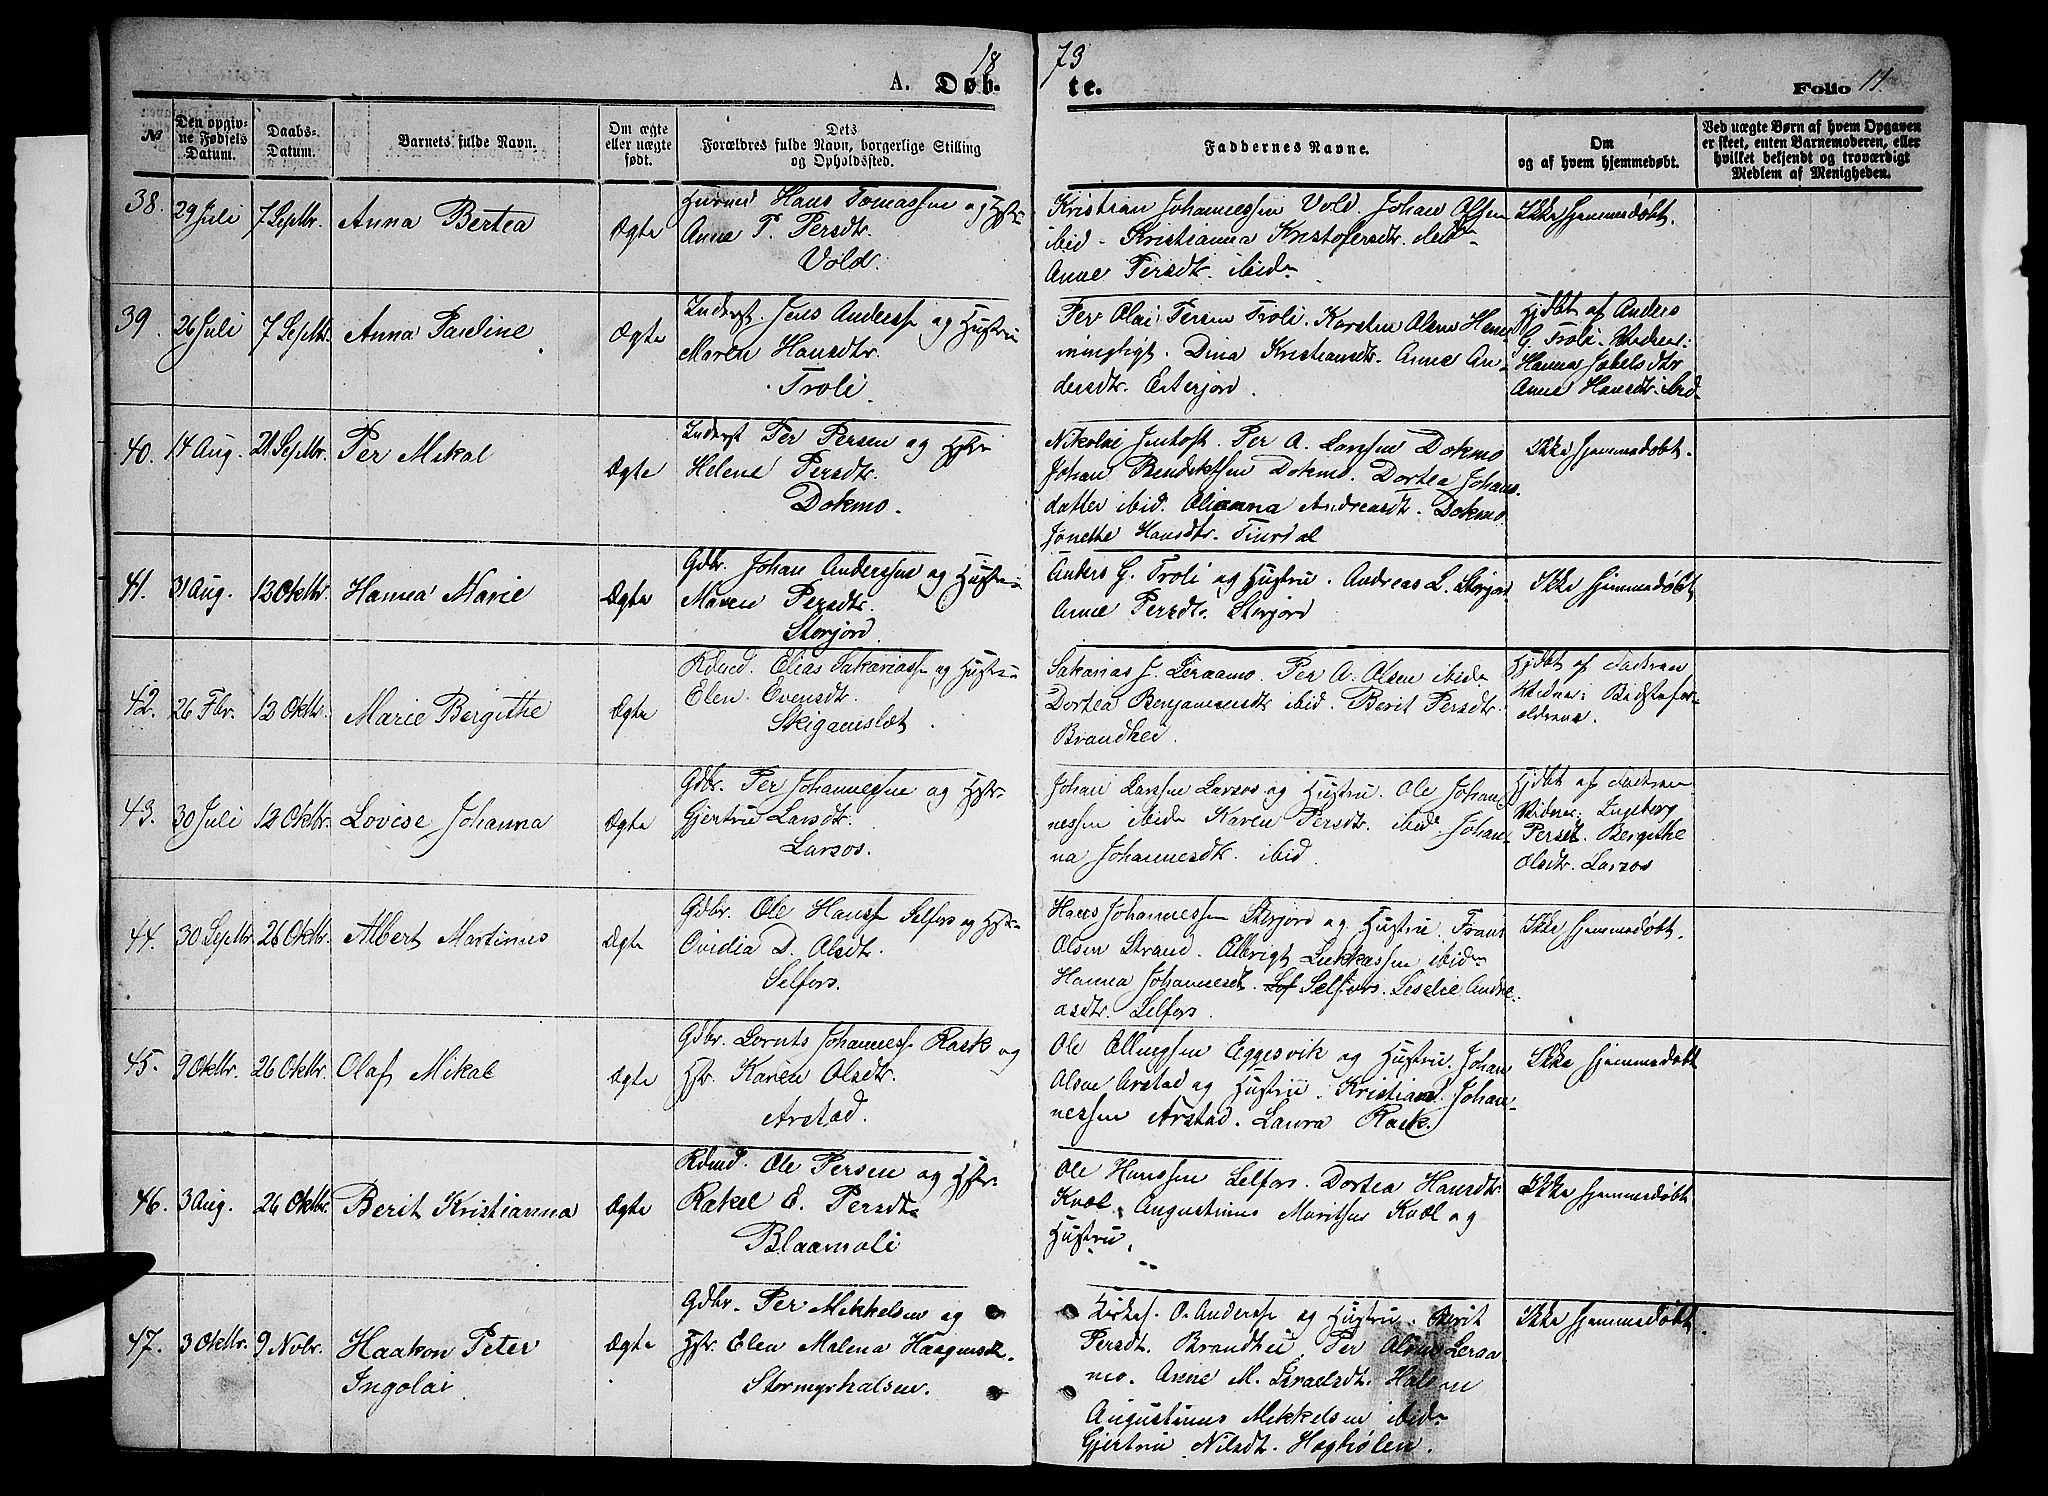 18 73
A. Døb. te. Folio 11.
№
Den opgivne Fødsels Datum.
Daabs-Datum.
Barnets fulde Navn.
Om ægte eller uægte født.
Dets Forældres fulde Navn, borgerlige Stilling og Opholdssted.
Faddernes Navne.
Om og af hvem hjemmedøbt.
Ved uægte Børn af hvem Opgaven er skeet, enten Barnemoderen, eller hvilket bekjendt og troværdigt Medlem af Menigheden.
38. 29 Juli 7 Septbr. Anna Bertea Ægte
Hans Tomassen og Hstr.
Anne P. Persdtr.
Vold.
Kristian Johannessen Vold. Johan Olsen
ibid. Kristianna Kristofersdtr.
Anne Persdtr. ibid
Ikke hjemmedøbt.
39. 26 Juli 7 Septbr. Anna Pauline Ægte
Inderst. Jens Anderss. og Hustru
Maren Hansdtr.
Troli.
Per Olai Persen Troli. Karsten Olsen Hem-
mingligt. Dina Kristiansdtr. Anne An-
dersdtr. Esterjord.
Hjdbt af Anders
G. Troli.
Hanna Jakelsdtr
Anne Hansdtr. ibid
40. 14 Aug. 21 Septbr. Per Mikal Ægte
Inderst Per Persen og Hstr.
Helene Persdtr.
Dokmo.
Nikolai Jentoft. Per A. Larssen Dokmo
Johan Bendiktsen Dokmo. Dortea Johans-
datter ibid. Olianna Andreasdtr. Dokmo
Jonette Hansdtr.
Ikke hjemmedøbt.
41. 31 Aug. 12 Oktbr. Hanna Marie Ægte
Gdbr. Johan Anderssen og Hustru
Maren Persdtr.
Storjord.
Anders G. Troli og Hustru. Andreas L. Storjord
Anne Persdtr. Storjord
Ikke hjemmedøbt
42. 26 Fbr. 12 Oktbr. Marie Bergithe Ægte
Rdmd. Elias Sakariass. og Hustru
Elen Evensdtr.
Skigamslæt.
Sakarias J. Leraamo. Per A. Olsen ibid
Dortea Benjaminsdtr ibid. Berit Persdtr.
Brandhei.
Hjdbt af Faderen
Vidner: Bedstefor-
ældrene.
43. 30 Juli 12 Oktbr. Lovise Johanna Ægte
Gdbr. Per Johannessen og Hstr.
Gjertru Larsdtr.
Larsos.
Johan Larssen Larsos og Hustru. Ole Johan-
nessen ibid Karen Persdtr. ibid. Johan-
na Johannesdtr. ibid.
Hjdbt af Faderen
Vidner: Ingeborg
Persdt. Bergithe
Olsdtr. Larsos
44. 30 Septbr. 26 Oktbr. Albert Martinus Ægte
Gdbr. Ole Hanss. Selfors og Hstr.
Ovidia D. Olsdtr.
Selfors.
Hans Johannessen Storjord og Hustru. Frans
Olsen Strand. Ellerigt Lukkassen ibid
Hanna Johannesdt. Selfors. Leselie Andre-
asdtr. Selfors.
Ikke hjemmedøbt.
45. 9 Oktbr. 26 Oktbr. Olaf Mikal Ægte
Gdbr. Lornts Johanness. Rask og
Hstr. Karen Olsdtr.
Arstad.
Ole Ellingsen Eggesvik og Hustru. Johan
Olsen Arstad og Hustru. Kristian Johan-
nessen Arstad. Laura Rask.
Ikke hjemmedøbt
46. 3 Aug. 26 Oktbr. Berit Kristianna Ægte
Rdmd. Ole Persen og Hstr.
Rakel E. Persdtr.
Blaamoli
Ole Hanssen Selfors. Dortea Hansdtr.
Kvæl. Augustinus Maritsen Kvæl og
Hustru.
Ikke hjemmedøbt
47. 3 Oktbr. 9 Novbr. Haakon Peter Ingolai Ægte
Gdbr. Per Mikkelsen og
Hstr. Elen Malena Haagensdt.
Stormyrhalsen.
Kirkes. O. Anderss. og Hustru. Berit
Persdt. Brandhei. Per Olsen Leraa-
mo. Anne M. Israelsdt. Halsen
Augustinus Mikkelsen ibid
Gjertru Nilsdt. Haghølen.
Ikke hjemmedøbt.